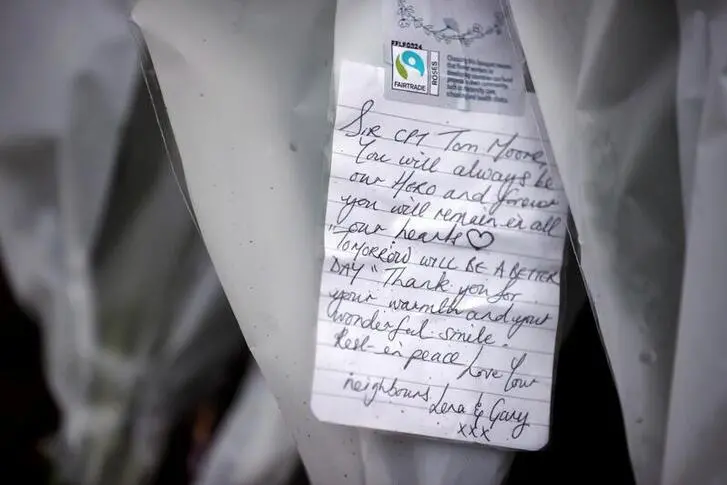 FFLF0324
FAIRTRADE
ROSES
Sir CPT Tom Moore
You will always be
our Hero and forever
you will remain in all
our hearts ♡
"TOMORROW WILL BE A BETTER
DAY" Thank you for
your warmth and your
wonderful smile.
Rest in peace Love Your
neighbours Lena & Gary
xxx